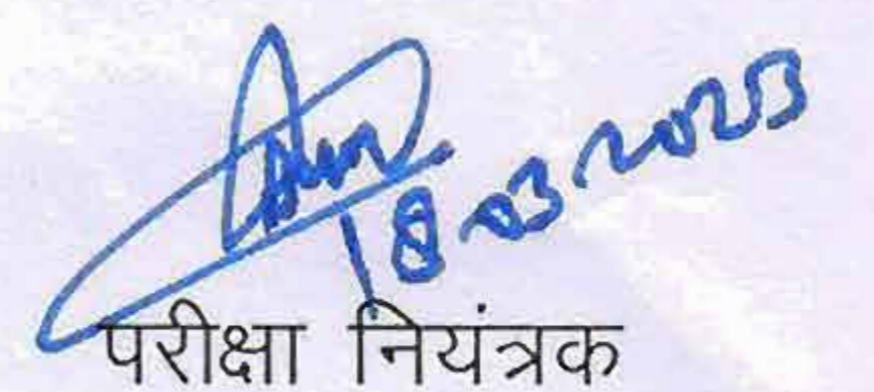 18.03.2023
परीक्षा नियंत्रक